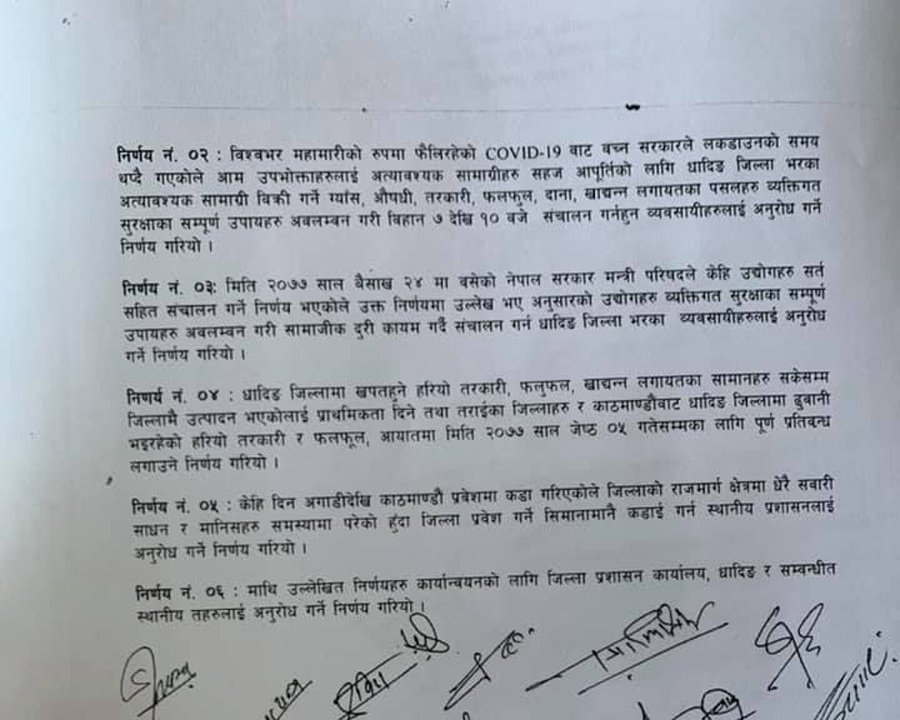 निर्णय नं. ०२ : विश्वभर महामारीको रुपमा फैलिरहेको COVID-19 बाट बच्न सरकारले लकडाउनको समय
थप्दै गएकोले आम उपभोक्ताहरुलाई अत्यावश्यक सामाग्रीहरु सहज आपूर्तिको लागि धादिङ जिल्ला भरका
अत्यावश्यक सामाग्री विक्री गर्ने ग्याँस, औषधी, तरकारी, फलफुल, दाना, खाद्यन्न लगायतका पसलहरु व्यक्तिगत
सुरक्षाका सम्पूर्ण उपायहरु अवलम्बन गरी विहान ७ देखि १० बजे संचालन गर्नहुन व्यवसायीहरुलाई अनुरोध गर्ने
निर्णय गरियो ।
निर्णय नं. ०३: मिति २०७७ साल बैसाख २४ मा बसेको नेपाल सरकार मन्त्री परिषदले केहि उद्योगहरु सर्त
सहित संचालन गर्ने निर्णय भएकोले उक्त निर्णयमा उल्लेख भए अनुसारको उद्योगहरु व्यक्तिगत सुरक्षाका सम्पूर्ण
उपायहरु अवलम्बन गरी सामाजीक दुरी कायम गर्दै संचालन गर्न धादिङ जिल्ला भरका व्यवसायीहरुलाई अनुरोध
गर्ने निर्णय गरियो ।
निणर्य नं. ०४ : धादिङ जिल्लामा खपतहुने हरियो तरकारी, फलुफल, खाद्यन्न लगायतका सामानहरु सकेसम्म
जिल्लामै उत्पादन भएकोलाई प्राथमिकता दिने तथा तराईका जिल्लाहरु र काठमाण्डौबाट धादिङ जिल्लामा ढुबानी
भइरहेको हरियो तरकारी र फलफूल, आयातमा मिति २०७७ साल जेष्ठ ०५ गतेसम्मका लागि पूर्ण प्रतिबन्ध
लगाउने निर्णय गरियो ।
निर्णय नं. ०५ : केहि दिन अगाडीदेखि काठमाण्डौ प्रवेशमा कडा गरिएकोले जिल्लाको राजमार्ग क्षेत्रमा धेरै सवारी
साधन र मानिसहरु समस्यामा परेको हुंदा जिल्ला प्रवेश गर्ने सिमानामानै कडाई गर्न स्थानीय प्रशासनलाई
अनुरोध गर्ने निर्णय गरियो ।
निर्णय नं. ०६ : माथि उल्लेखित निर्णयहरु कार्यान्वयनको लागि जिल्ला प्रशासन कार्यालय, धादिङ र सम्वन्धीत
स्थानीय तहरुलाई अनुरोध गर्ने निर्णय गरियो ।